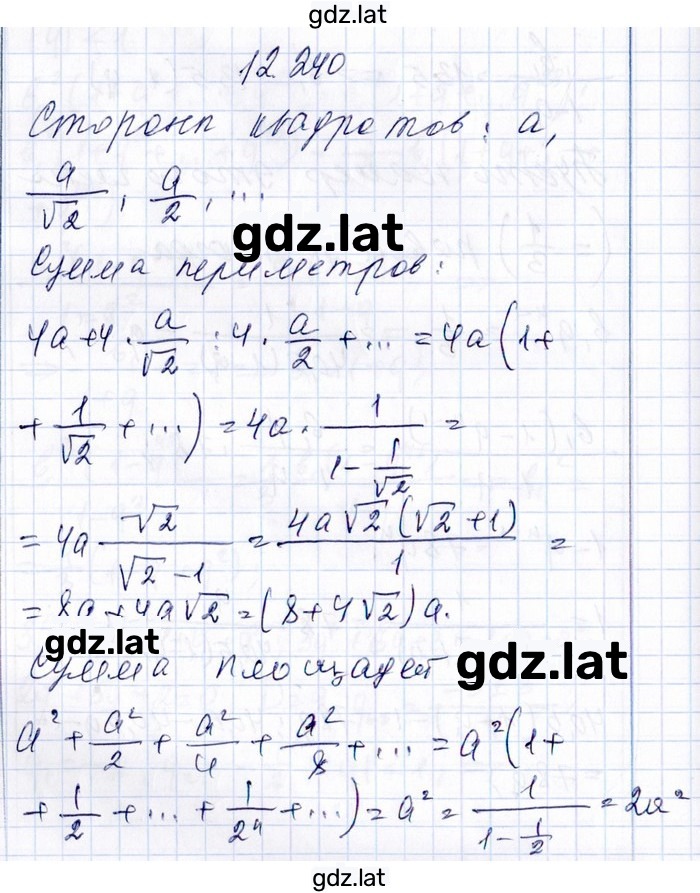 gdz.lat
12.240
Стороны квадратов: a,
a/√2, a/2, ...
gdz.lat
Сумма периметров:
4a+4·a/√2 : 4·a/2 + ... = 4a(1+
+ 1/√2 + ...) = 4a · 1/(1 - 1/√2) =
= 4a √2/(√2 - 1) = 4a√2(√2+1)/1 =
= 8a + 4a√2 = (8+4√2)a.
gdz.lat
Сумма площадей
gdz.lat
a² + a²/2 + a²/4 + a²/8 + ... = a²(1+
+ 1/2 + ... + 1/2ⁿ + ...) = a² = 1/(1 - 1/2) = 2a²
gdz.lat